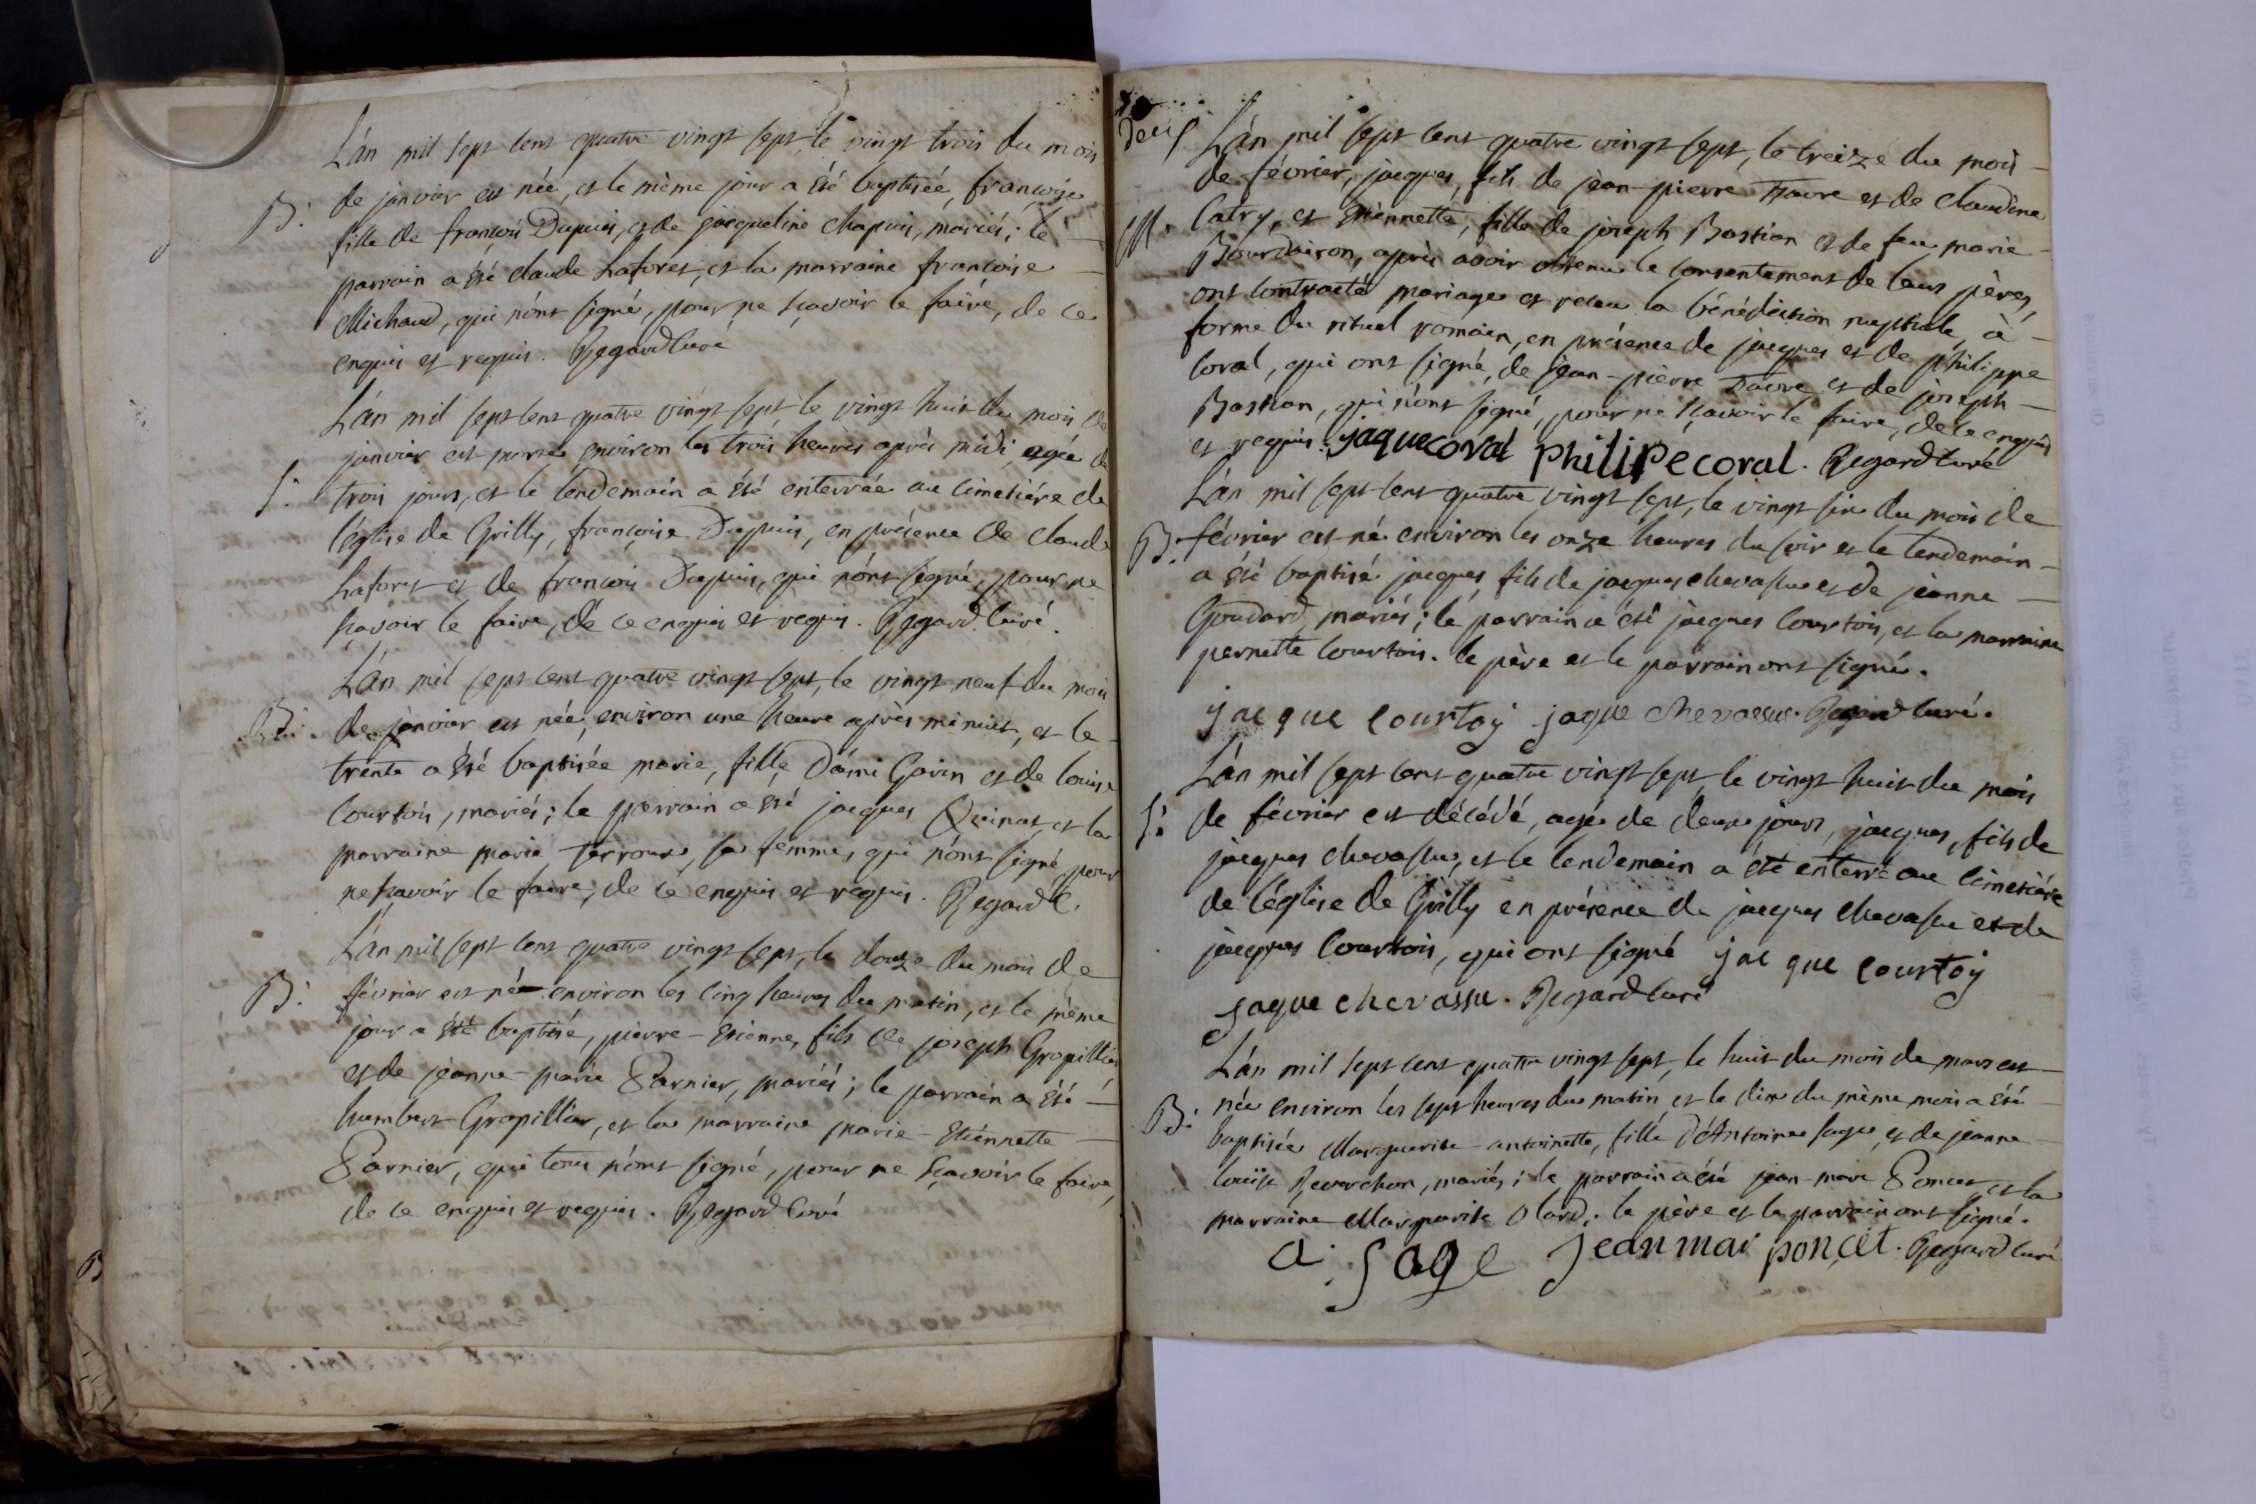 L'án mil sept cent quatre vingt sept, le vingt trois du mois
B: de janvier est née, et le même jour a été baptisée, françoise
fille de françois Dupuis, et de jacqueline chapuis, mariés; le
parrain a été claude Laforet, et la marraine françoise
Michaud, qui n'ont signé, pour ne sçavoir le faire, de ce
enquis et requis. Regard Curé
L'án mil sept cent quatre vingt sept le vingt huit du mois de
janvier est morte environ les trois heures après midi, agée de
S: trois jours, et le lendemain a été enterrée au cimetiére de
l'église de Grilly, françoise Dupuis, en présence de claude
Laforet et de françois Dupuis, qui n'ont signé, pour ne
sçavoir le faire, de ce enquis et requis. Regard Curé.
L'án mil sept cent quatre vingt sept, le vingt neuf du mois
B: de janvier est née, environ une heure après minuit, et le
trente a été baptisée marie, fille d'ámi Gavin et de louise
Courtois, mariés; le parrain a été jacques Quinat, et la
marraine marie Terroux, sa femme, qui n'ont signé, pour
ne sçavoir le faire, de ce enquis et requis. Regard C.
L'án mil sept cent quatre vingt sept, le douze du mois de
B: février est né environ les cinq heures du matin, et le même
jour a été baptisé, pierre-etienne, fils de joseph Gropillier
et de jeanne-marie Garnier, mariés; le parrain a été
humbert Gropillier, et la marraine marie-Etiennette
Garnier, qui tous n'ont signé, pour ne sçavoir le faire,
de ce enquis et requis. Regard Curé
B
L'án mil sept cent quatre vingt sept, le treize du mois
de février, jacques, fils de jean-pierre Favre et de claudine
M. Catry, et Etiennette, fille de joseph Bastian et de feu marie
Bourdairon, après avoir obtenu le consentement de leurs pères,
ont contracté mariage et recu la bénédiction nuptiale, à
forme du rituel romain, en présence de jacques et de philippe
Coral, qui ont signé, de jean-pierre Favre et de joseph
Bastian, qui n'ont signé, pour ne sçavoir le faire, de ce enquis
et requis. jaque coral philipe coral. Regard Curé
L'án mil sept cent quatre vingt sept, le vingt six du mois de
B: février est né environ les onze heures du soir et le lendemain
a été baptisé jacques, fils de jacques chevassu et de jeanne
Goudard, mariés; le parrain a été jacques Courtois, et la marraine
pernette Courtois. le père et le parrain ont signé.
jacque courtoy jaque chevassus. Regard Curé.
L'án mil sept cent quatre vingt sept, le vingt huit du mois
S: de février est décédé, agé de deux jours, jacques, fils de
jacques chevassu, et le lendemain a été enterré au cimetiére
de l'église de Grilly en présence de jacques chevassu et de
jacques Courtois, qui ont signé jacque courtoy
jaque chevassu. Regard Curé
L'án mil sept cent quatre vingt sept, le huit du mois de mars est
B: née environ les sept heures du matin, et le dix du même mois a été
baptisée Marguerite-antoinette, fille d'Antoine sage, et de jeanne
louïse Reverchon, mariés; le parrain a été jean-marc Poncet, et la
marraine Marguerite Olard. le père et le parrain ont signé.
a. sage jean mar ponçet. Regard Curé